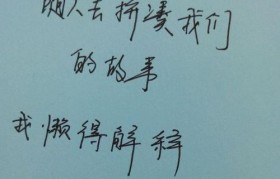 人去拼凑我们
的故事
我懒得解释